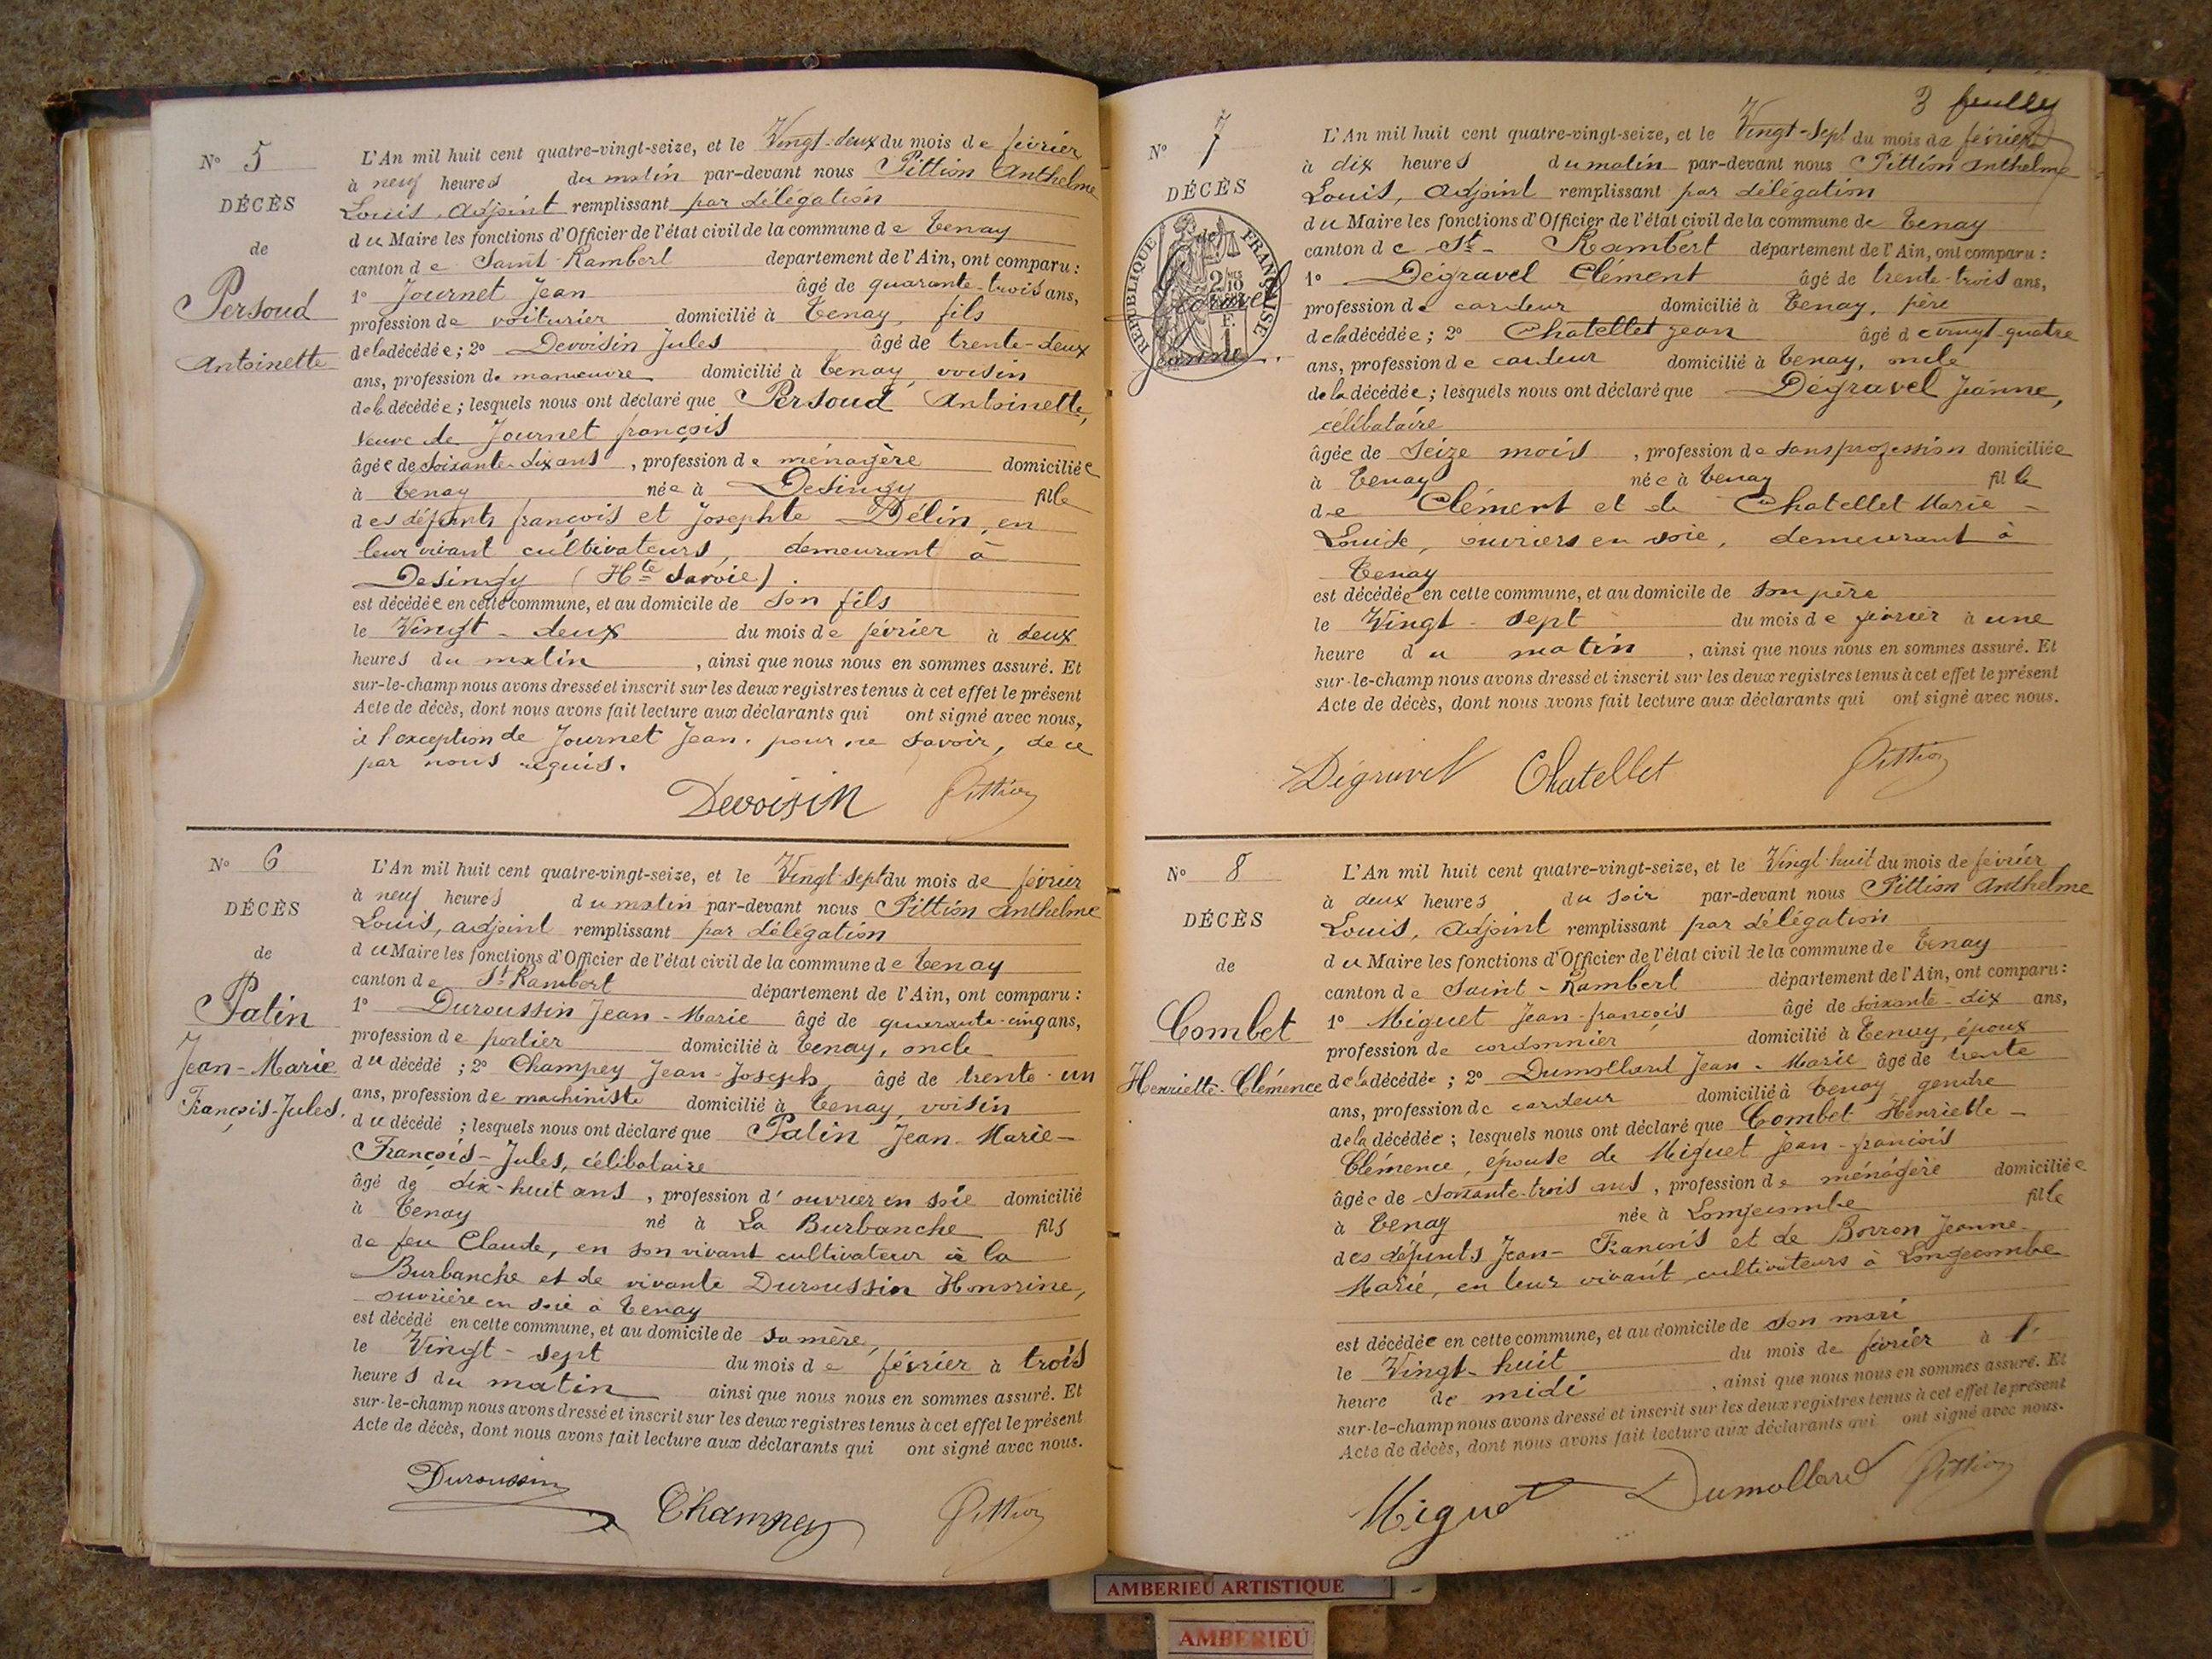 N° 5
DÉCÈS
de
Persoud
Antoinette
L'An mil huit cent quatre-vingt-seize, et le Vingt-deux du mois de février
à neuf heures du matin par-devant nous Pittion Anthelme
Louis, adjoint remplissant par délégation
du Maire les fonctions d'Officier de l'état civil de la commune de Tenay
canton de Saint-Rambert département de l'Ain, ont comparu :
1° Journet Jean âgé de quarante-trois ans,
profession de voiturier domicilié à Tenay, fils
de la décédée ; 2° Devoisin Jules âgé de trente-deux
ans, profession de manœuvre domicilié à Tenay, voisin
de la décédée ; lesquels nous ont déclaré que Persoud Antoinette,
Veuve de Journet françois
âgée de soixante-dix ans, profession de ménagère domiciliée
à Tenay née à Desingy fille
des défunts françois et Josephte Délin, en
leur vivant cultivateurs, demeurant à
Desingy (Hte Savoie).
est décédée en cette commune, et au domicile de son fils
le Vingt-deux du mois de février à deux
heures du matin, ainsi que nous nous en sommes assuré. Et
sur-le-champ nous avons dressé et inscrit sur les deux registres tenus à cet effet le présent
Acte de décès, dont nous avons fait lecture aux déclarants qui ont signé avec nous,
à l'exception de Journet Jean. pour ne savoir, de ce
par nous requis.
Devoisin Pittion
N° 6
DÉCÈS
de
Patin
Jean-Marie
François-Jules.
L'An mil huit cent quatre-vingt-seize, et le Vingt-sept du mois de février
à neuf heures du matin par-devant nous Pittion Anthelme
Louis, adjoint remplissant par délégation
du Maire les fonctions d'Officier de l'état civil de la commune de Tenay
canton de St Rambert département de l'Ain, ont comparu :
1° Duroussin Jean-Marie âgé de quarante-cinq ans,
profession de portier domicilié à Tenay, oncle
du décédé ; 2° Champey Jean-Joseph, âgé de trente-un
ans, profession de machiniste domicilié à Tenay, voisin
du décédé ; lesquels nous ont déclaré que Patin Jean-Marie-
François-Jules, célibataire
âgé de dix-huit ans, profession d'ouvrier en soie domicilié
à Tenay né à La Burbanche fils
de feu Claude, en son vivant cultivateur à la
Burbanche et de vivante Duroussin Honorine,
ouvrière en soie à Tenay
est décédé en cette commune, et au domicile de sa mère,
le Vingt-sept du mois de février à trois
heures du matin ainsi que nous nous en sommes assuré. Et
sur-le-champ nous avons dressé et inscrit sur les deux registres tenus à cet effet le présent
Acte de décès, dont nous avons fait lecture aux déclarants qui ont signé avec nous.
Duroussin Champey Pittion
3 feuille
N° 7
DÉCÈS
de
Dégravel
Jeanne.
RÉPUBLIQUE FRANÇAISE
L'An mil huit cent quatre-vingt-seize, et le Vingt-sept du mois de février
à dix heures du matin par-devant nous Pittion Anthelme
Louis, adjoint remplissant par délégation
du Maire les fonctions d'Officier de l'état civil de la commune de Tenay
canton de St-Rambert département de l'Ain, ont comparu :
1° Dégravel Clément âgé de trente-trois ans,
profession de cardeur domicilié à Tenay, père
de la décédée ; 2° Chatellet Jean âgé de vingt-quatre
ans, profession de cardeur domicilié à Tenay, oncle
de la décédée ; lesquels nous ont déclaré que Dégravel Jeanne,
célibataire
âgée de seize mois, profession de sans profession domiciliée
à Tenay née à Tenay fille
de Clément et de Chatellet Marie-
Louise, ouvriers en soie, demeurant à
Tenay
est décédée en cette commune, et au domicile de son père
le Vingt-sept du mois de février à une
heure du matin, ainsi que nous nous en sommes assuré. Et
sur-le-champ nous avons dressé et inscrit sur les deux registres tenus à cet effet le présent
Acte de décès, dont nous avons fait lecture aux déclarants qui ont signé avec nous.
Dégravel Chatellet Pittion
N° 8
DÉCÈS
de
Combet
Henriette-Clémence
L'An mil huit cent quatre-vingt-seize, et le Vingt-huit du mois de février
à deux heures du soir par-devant nous Pittion Anthelme
Louis, adjoint remplissant par délégation
du Maire les fonctions d'Officier de l'état civil de la commune de Tenay
canton de Saint-Rambert département de l'Ain, ont comparu :
1° Miguet Jean-françois âgé de soixante-dix ans,
profession de cordonnier domicilié à Tenay, époux
de la décédée ; 2° Dumollard Jean-Marie âgé de trente
ans, profession de cardeur domicilié à Tenay gendre
de la décédée ; lesquels nous ont déclaré que Combet Henriette-
Clémence, épouse de Miguet Jean-françois
âgée de soixante-trois ans, profession de ménagère domiciliée
à Tenay née à Longecombe fille
des défunts Jean-François et de Borron Jeanne-
Marie, en leur vivant cultivateurs à Longecombe
est décédée en cette commune, et au domicile de son mari
le Vingt-huit du mois de février à l'
heure de midi, ainsi que nous nous en sommes assuré. Et
sur-le-champ nous avons dressé et inscrit sur les deux registres tenus à cet effet le présent
Acte de décès, dont nous avons fait lecture aux déclarants qui ont signé avec nous.
Miguet Dumollard Pittion
AMBERIEU ARTISTIQUE
AMBERIEU